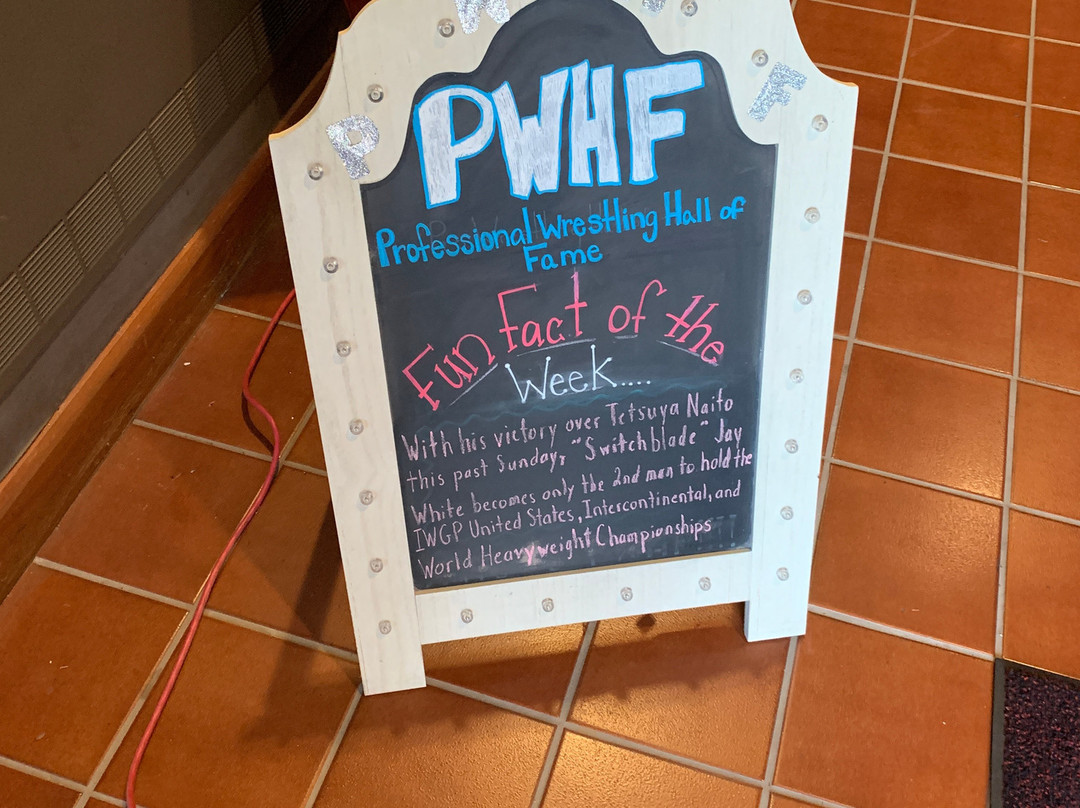 P W H F
PWHF
Professional Wrestling Hall of
Fame
Fun Fact of the
Week....
With his victory over Tetsuya Naito
this past Sunday, "Switchblade" Jay
White becomes only the 2nd man to hold the
IWGP United States, Intercontinental, and
World Heavyweight Championships